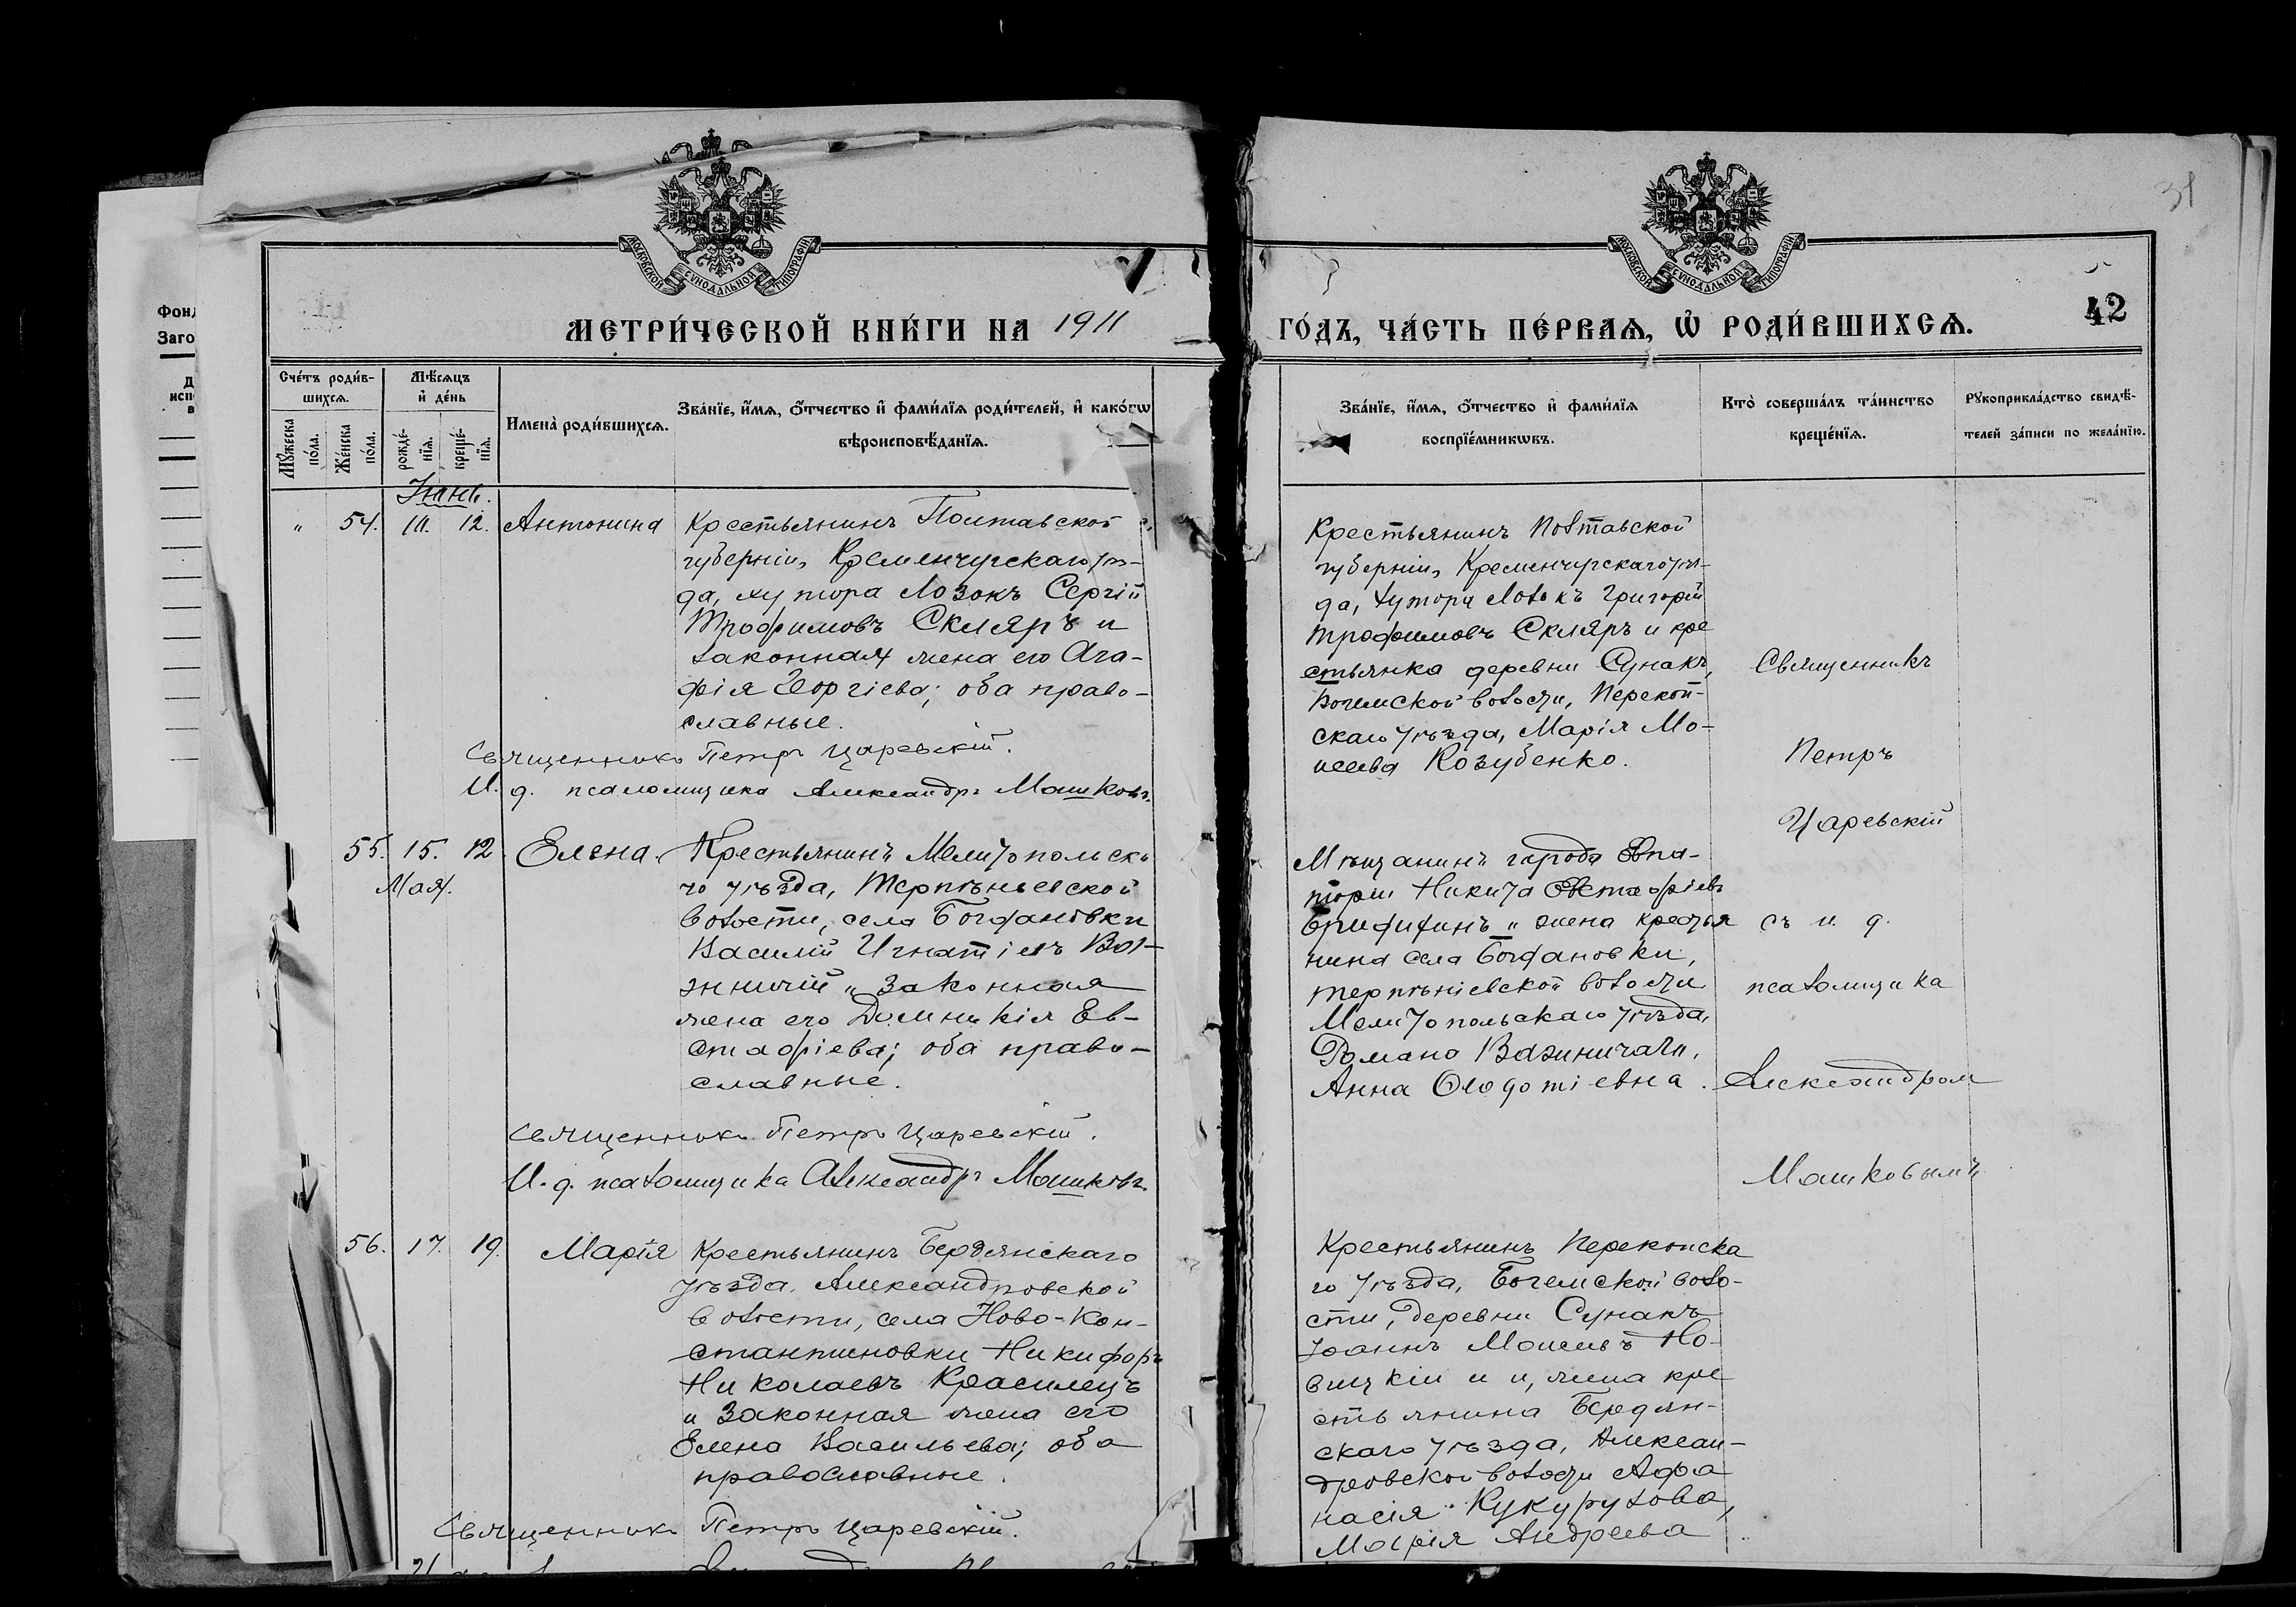 31
42
МОСКОВСКОЙ СѴНОДАЛЬНОЙ ТИПОГРАФІИ
МОСКОВСКОЙ СѴНОДАЛЬНОЙ ТИПОГРАФІИ
Фонд
Заго
МЕТРИ́ЧЕСКОЙ КНИ́ГИ НА 1911
ГО́ДЪ, ЧА́СТЬ ПЕ́РВАѦ, Ѡ҆ РОДИ́ВШИХСѦ.
Сче́тъ роди́в-
шихсѧ.
Мꙋ́жеска по́ла.
Же́нска по́ла.
Мѣ́сѧцъ
и҆ де́нь
рожде́-
нїѧ.
креще́-
нїѧ.
Имена̀ роди́вшихсѧ.
Зва́нїе, и҆́мѧ, ѻ҆́тчество и҆ фами́лїѧ роди́телей, и҆ како́гѡ
вѣроисповѣ́данїѧ.
Зва́нїе, и҆́мѧ, ѻ҆́тчество и҆ фами́лїѧ
воспрїе́мникѡвъ.
Кто̀ соверша́лъ та́инство
креще́нїѧ.
Рꙋкоприкла́дство свидѣ́-
телей за́писи по жела́нїю.
Іюнь.
" 54. 12. Антонина
Крестьянинъ Полтавской
губерніи, Кременчугскаго уѣз-
да, хутора Лозокъ Сергій
Трофимовъ Скляръ и
законная жена его Ага-
фія Георгіева; оба право-
славные.
Священникъ Петръ Царевскій.
И. д. псаломщика Александръ Машковъ.
Крестьянинъ Полтавской
губерніи, Кременчугскаго уѣз-
да, хутора Лозокъ Григорій
Трофимовъ Скляръ и кре
стьянка деревни Сунакъ,
Богемской волости, Перекоп-
скаго уѣзда, Марія Мо-
исеева Козубенко.
Священникъ
Петръ
Царевскій
55. 15. 12 Елена.
Мая.
Крестьянинъ Мелитопольска
го уѣзда, Терпѣньевской
волости, села Богдановки
Василій Игнатіевъ
и законная
жена его Домникія Ев-
стафіева; оба право-
славные.
Священникъ Петръ Царевскій.
И. д. псаломщика Александръ Машковъ.
Мѣщанинъ города Евпа-
торіи Никита Евстафіевъ
и жена крестья
нина села Богдановки,
Терпѣніевской волости
Мелитопольскаго уѣзда,
Романа
Анна Ѳеодотіевна.
съ и. д.
псаломщика
Александром
Машковымъ
56. 17. 19. Марія
Крестьянинъ Бердянскаго
уѣзда. Александровской
волости, села Ново-Кон-
стантиновки Никифоръ
Николаевъ Красилецъ
и законная жена его
Елена Васильева; оба
православные.
Священникъ Петръ Царевскій.
Крестьянинъ Перекопска
го уѣзда, Богемской воло-
сти, деревни Сунакъ
Іоаннъ Моисеевъ Но-
вицкій и жена кре
стьянина Бердян-
скаго уѣзда, Алексан-
дровской волости Афа
насія Кукурузова,
Марія Андреева